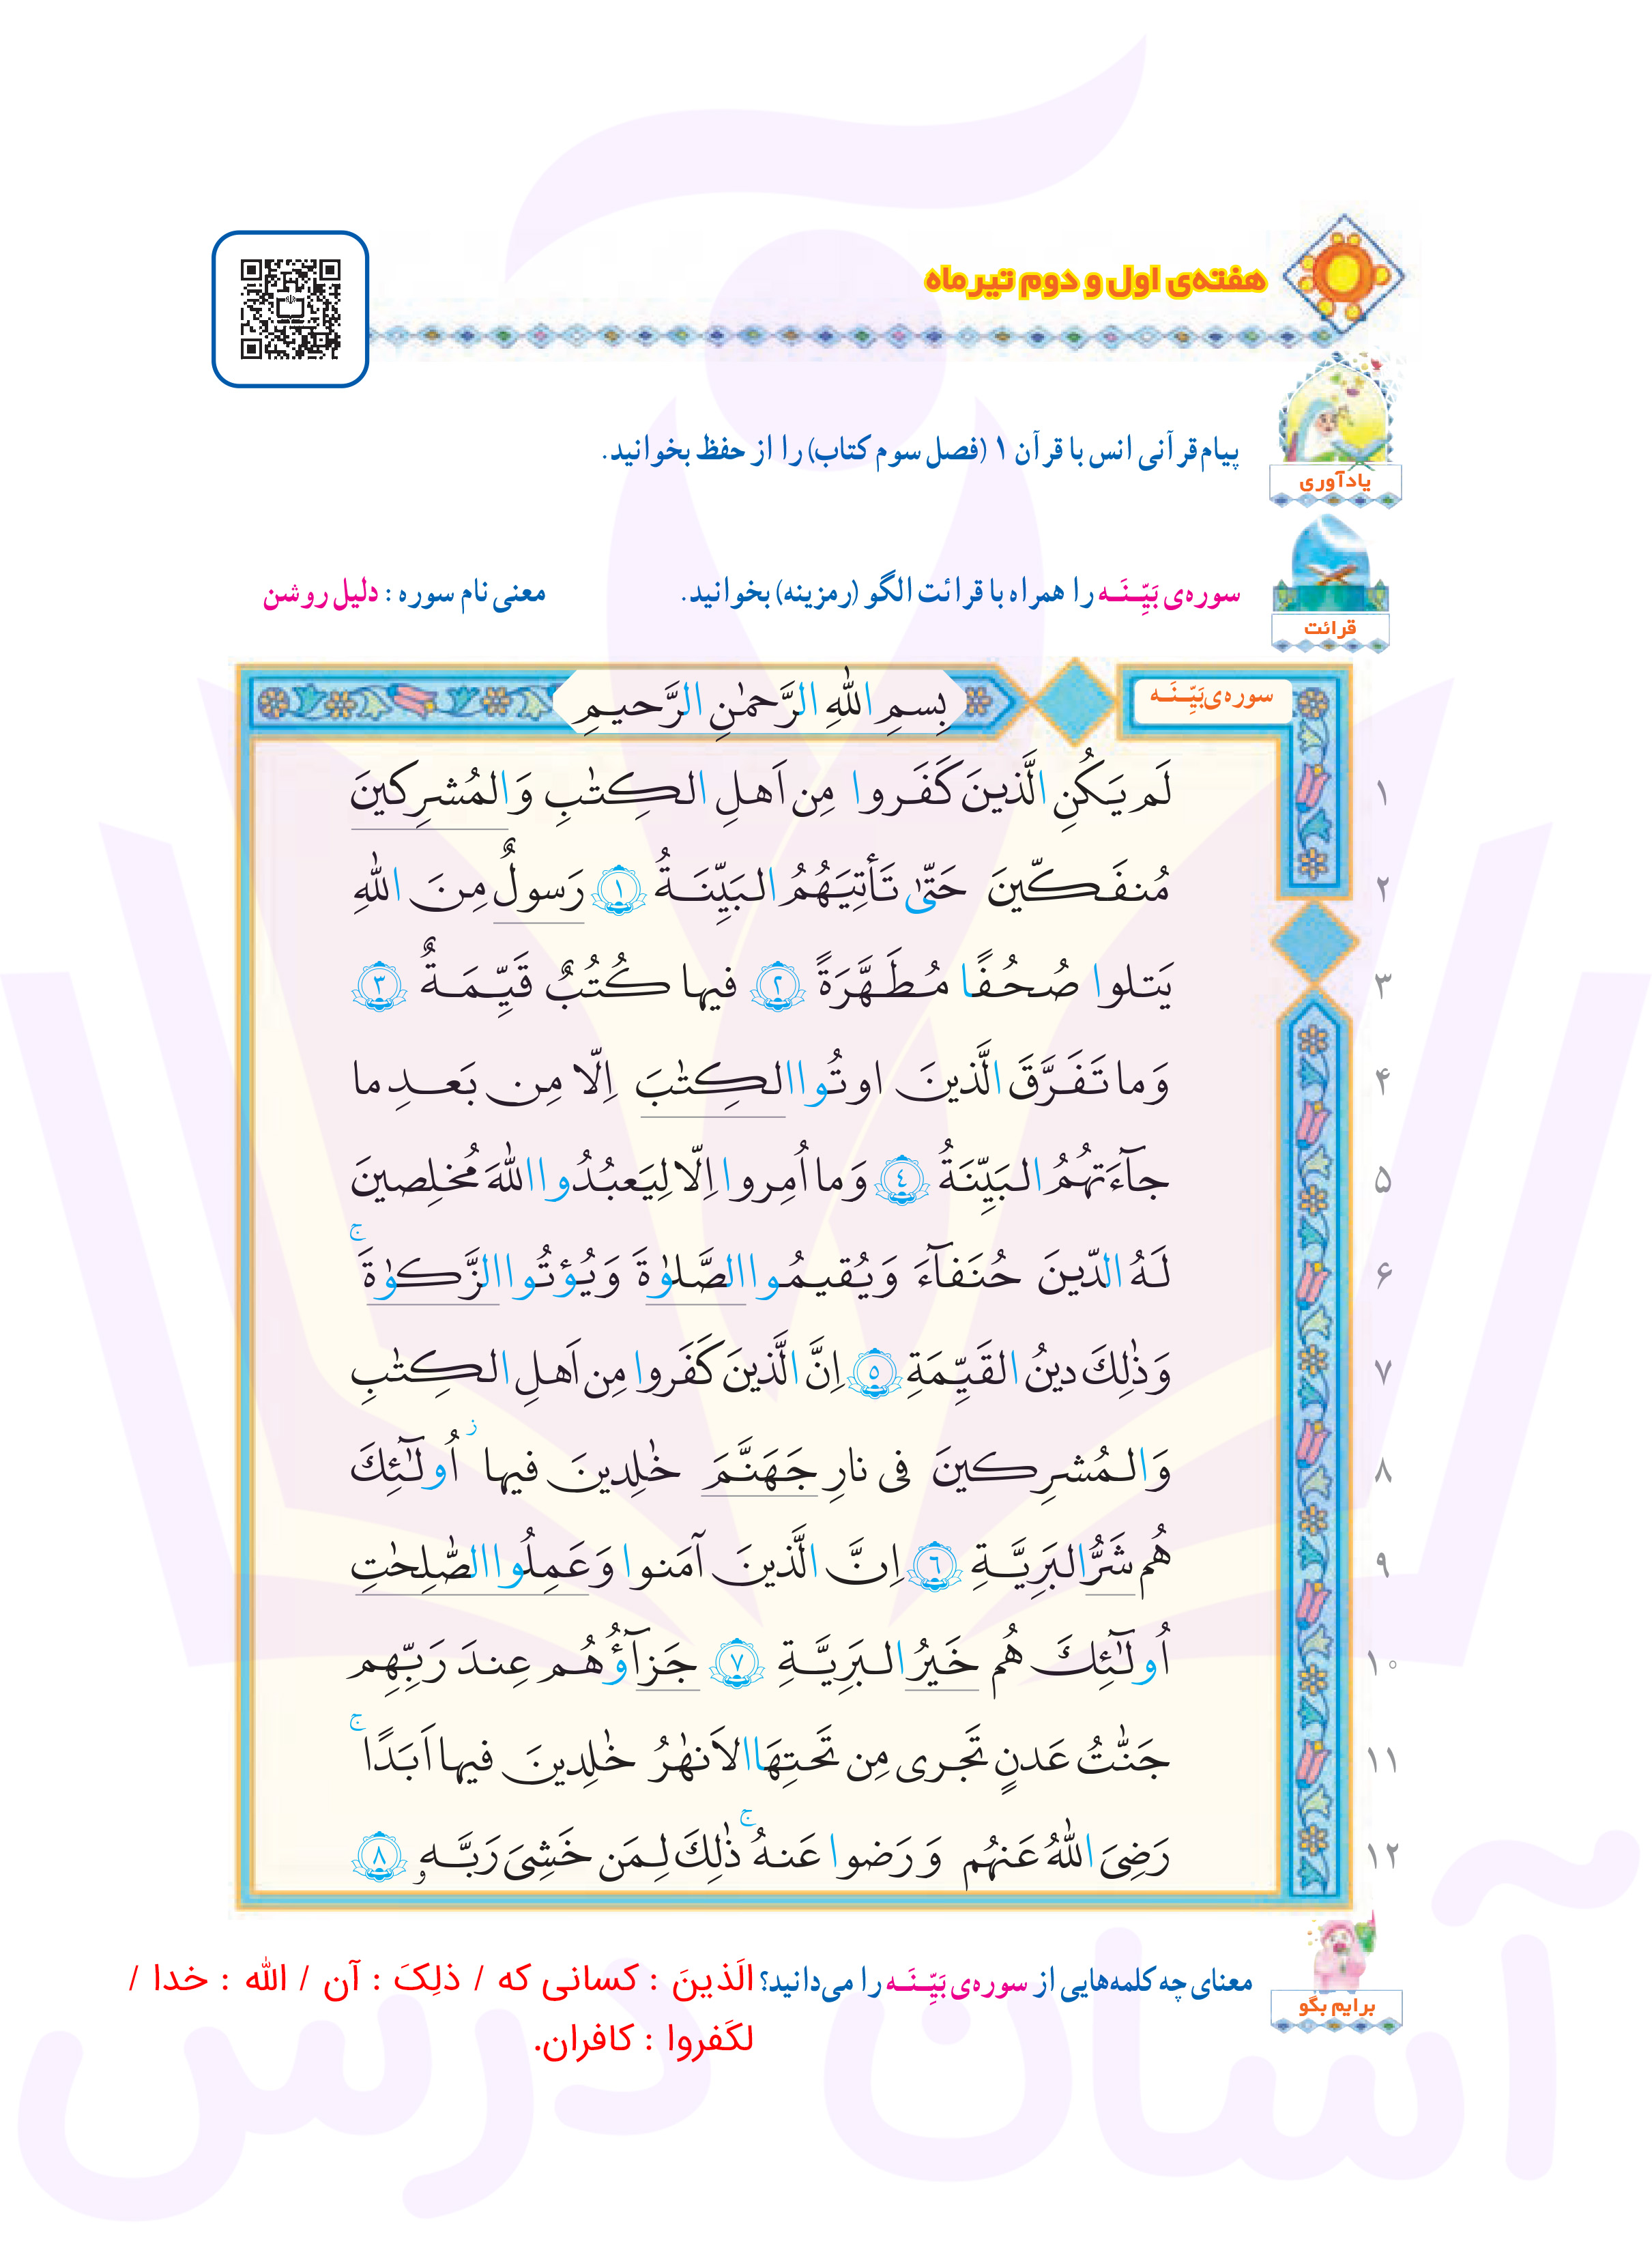 هفته‌ی اول و دوم تیر ماه
پیام قرآنی انس با قرآن ۱ (فصل سوم کتاب) را از حفظ بخوانید.
یادآوری
سوره‌ی بَیِّـنَـه را همراه با قرائت الگو (رمزینه) بخوانید. معنی نام سوره : دلیل روشن
قرائت
سوره‌ی بَیِّـنَـه
بِسمِ اللّٰهِ الرَّحمٰنِ الرَّحیمِ
۱ لَم یَکُنِ الَّذینَ کَفَروا مِن اَهلِ الکِتٰبِ وَالمُشرِکینَ
۲ مُنفَکّینَ حَتّیٰ تَأتِیَهُمُ البَیِّنَةُ ﴿١﴾ رَسولٌ مِنَ اللّٰهِ
۳ یَتلوا صُحُفًا مُطَهَّرَةً ﴿٢﴾ فیها کُتُبٌ قَیِّمَةٌ ﴿٣﴾
۴ وَ ما تَفَرَّقَ الَّذینَ اوتُوا الکِتٰبَ اِلّا مِن بَعدِ ما
۵ جآءَتهُمُ البَیِّنَةُ ﴿٤﴾ وَ ما اُمِروا اِلّا لِیَعبُدُوا اللّٰهَ مُخلِصینَ
۶ لَهُ الدّینَ حُنَفآءَ وَ یُقیمُوا الصَّلوٰةَ وَ یُؤتُوا الزَّکوٰةَ ۚ
۷ وَ ذٰلِکَ دینُ القَیِّمَةِ ﴿٥﴾ اِنَّ الَّذینَ کَفَروا مِن اَهلِ الکِتٰبِ
۸ وَالمُشرِکینَ فی نارِ جَهَنَّمَ خٰلِدینَ فیها ز اُولٰٓئِکَ
۹ هُم شَرُّ البَرِیَّةِ ﴿٦﴾ اِنَّ الَّذینَ آمَنوا وَ عَمِلُوا الصّٰلِحٰتِ
۱۰ اُولٰٓئِکَ هُم خَیرُ البَرِیَّةِ ﴿٧﴾ جَزآؤُهُم عِندَ رَبِّهِم
۱۱ جَنّٰتُ عَدنٍ تَجری مِن تَحتِهَا الاَنهٰرُ خٰلِدینَ فیها اَبَدًا ۚ
۱۲ رَضِیَ اللّٰهُ عَنهُم وَ رَضوا عَنهُ ۚ ذٰلِکَ لِمَن خَشِیَ رَبَّهۥ ﴿٨﴾
معنای چه کلمه‌هایی از سوره‌ی بَیِّـنَـه را می‌دانید؟ الَذینَ : کسانی که / ذلِکَ : آن / الله : خدا /
لکَفروا : کافران.
برایم بگو
آسان درس